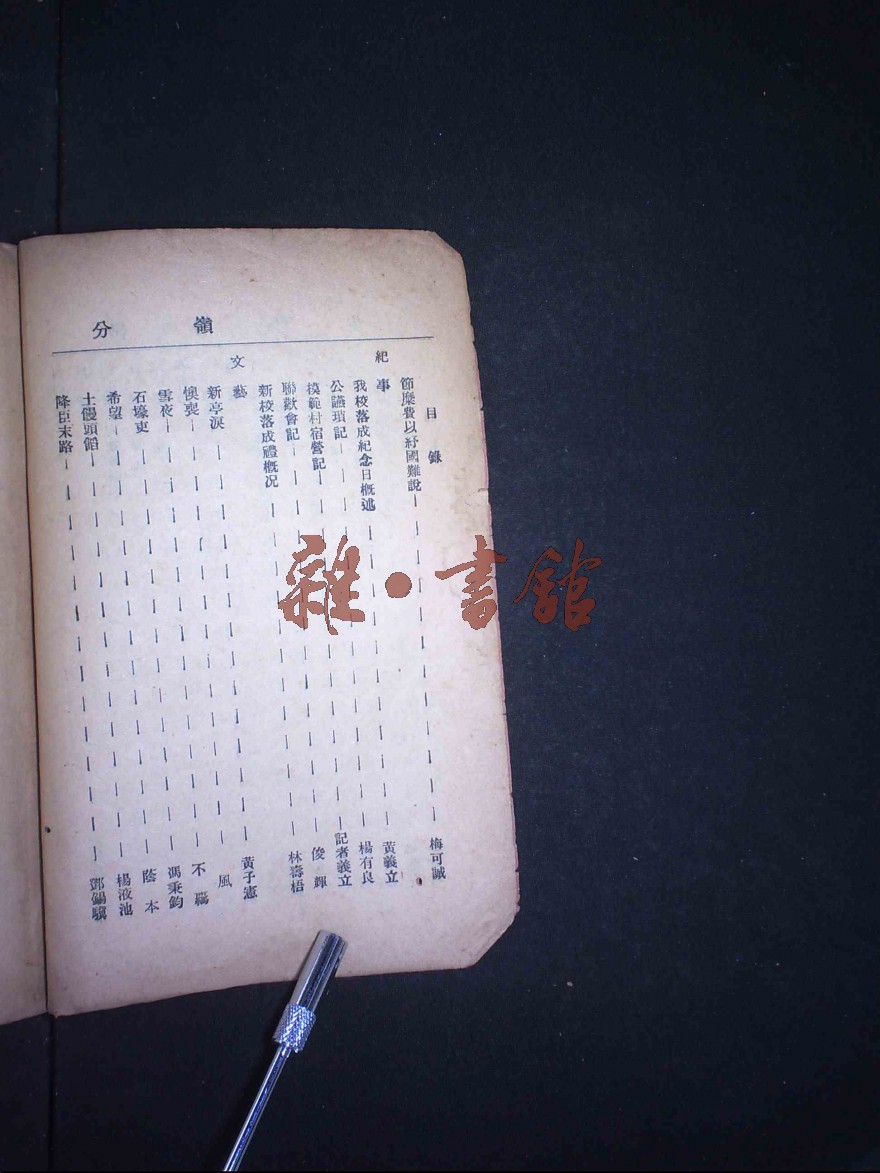 嶺分
目錄
節糜費以紓國難說 梅可誠
紀事
我校落成紀念日概述 黃義立
公讌瑣記 楊有良
模範村宿營記 記者義立
聯歡會記 俊輝
新校落成禮概况 林壽梧
文藝
新亭淚 黃子憲
懊喪 風
雪夜 不羈
石壕吏 馮秉鈞
希望 蔭本
土饅頭餡 楊液池
降臣末路 鄧錫
雜·書館